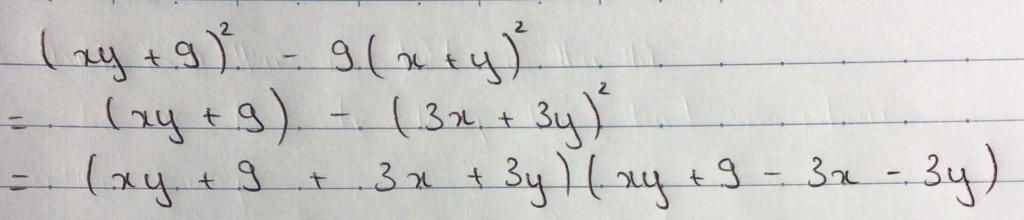 (xy + 9)² - 9(x + y)²
= (xy + 9) - (3x + 3y)²
= (xy + 9 + 3x + 3y)(xy + 9 - 3x - 3y)